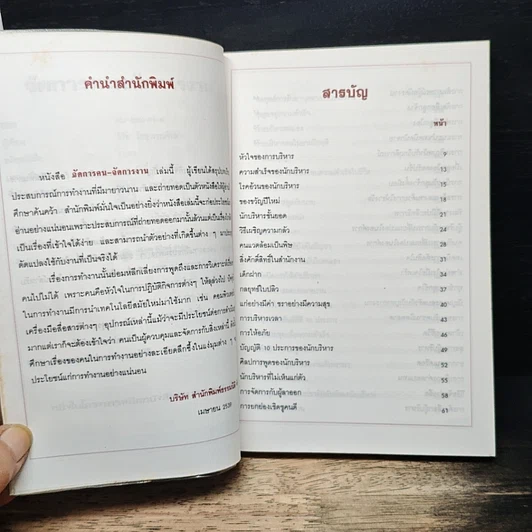 คำนำสำนักพิมพ์
หนังสือ จัดการคน-จัดการงาน เล่มนี้ ผู้เขียนได้สรุปบทเรียน
ประสบการณ์การทำงานที่มีมายาวนาน และถ่ายทอดเป็นตัวหนังสือให้ผู้อ่าน
ศึกษาค้นคว้า สำนักพิมพ์มั่นใจเป็นอย่างยิ่งว่าหนังสือเล่มนี้จะก่อประโยชน์
อ่านอย่างแน่นอนเพราะประสบการณ์ที่ถ่ายทอดออกมานั้นล้วนแต่เป็น
เป็นเรื่องที่เข้าใจได้ง่าย และสามารถนำตัวอย่างที่เกิดขึ้นต่าง ๆ มา
ดัดแปลงใช้กับงานที่เป็นจริงได้
เรื่องการทำงานนั้นย่อมหลีกเลี่ยงการพูดถึงและการวิเคราะห์
คนไปไม่ได้ เพราะคนคือหัวใจในการปฏิบัติกิจการต่างๆ ให้ลุล่วงไป
ในการทำงานมีการนำเทคโนโลยีสมัยใหม่มาใช้มาก เช่น คอมพิวเตอร์
เครื่องมือสื่อสารต่างๆ อุปกรณ์เหล่านี้แม้ว่าจะมีประโยชน์ต่อการ
มากแต่เราก็จะต้องเข้าใจว่า คนเป็นผู้ควบคุมและจัดการกับสิ่งเหล่านี้
ศึกษาเรื่องของคนในการทำงานอย่างละเอียดลึกซึ้งในแง่มุมต่าง ๆ
ประโยชน์แก่การทำงานอย่างแน่นอน
บริษัท สำนักพิมพ์
เมษายน
สารบัญ
หน้า
หัวใจของการบริหาร 9
ความสำเร็จของนักบริหาร 13
โรคร้ายของนักบริหาร 15
ของขวัญปีใหม่ 18
นักบริหารชั้นยอด 21
วิธีเผชิญความกลัว 24
คนแวดล้อมเป็นพิษ 28
สิ่งศักดิ์สิทธิ์ในสำนักงาน 31
เด็กฝาก 34
กลยุทธ์ใบปลิว 37
แก่อย่างมีค่า ชราอย่างมีความสุข 40
การบริหารเวลา 43
การให้อภัย 46
บัญญัติ 10 ประการของนักบริหาร 49
ศิลปการพูดของนักบริหาร 52
นักบริหารที่ไม่เห็นแก่ตัว 55
การจัดการกับผู้ลาออก 58
การยกย่องเชิดชูคนดี 61